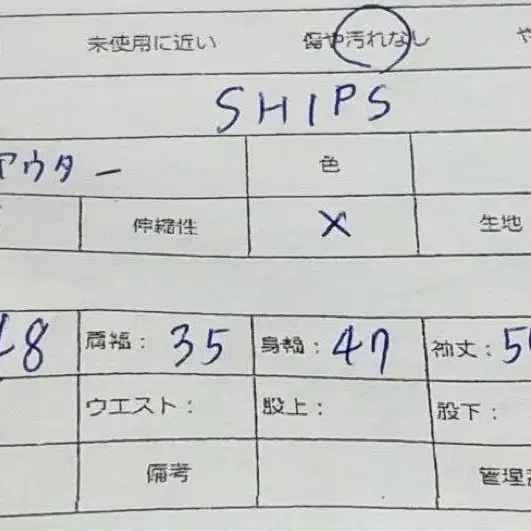 未使用に近い 傷や汚れなし や
SHIPS
アウター 色
伸縮性 × 生地
48 肩幅: 35 身幅: 47 袖丈: 5
ウエスト: 股上: 股下:
備考 管理